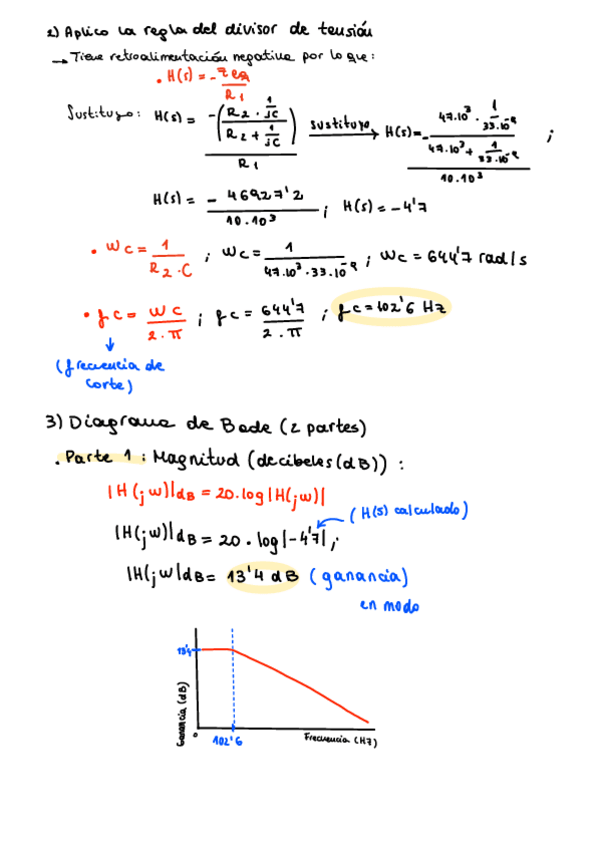 2) Aplico la regla del divisor de tensión
→ Tiene retroalimentación negativa por lo que:
• H(s) = - Zeq / R1
Sustituyo: H(s) = -(R2 · 1/jC / R2 + 1/jC) / R1 sustituyo → H(s) = - (47·10³ · 1/33·10⁻⁹ / 47·10³ + 1/33·10⁻⁹) / 10·10³ ;
H(s) = - 46927'2 / 10·10³ ; H(s) = -4'7
• Wc = 1 / R2·C ; Wc = 1 / 47·10³·33·10⁻⁹ ; Wc = 644'7 rad/s
• fc = Wc / 2·π ; fc = 644'7 / 2·π ; fc = 102'6 Hz
(frecuencia de
corte)
3) Diagrama de Bode (2 partes)
• Parte 1: Magnitud (decibeles (dB)):
|H(jw)|dB = 20·log|H(jw)|
(H(s) calculado)
|H(jw)|dB = 20·log|-4'7|;
|H(jw|dB = 13'4 dB (ganancia)
en modo
13'4
Ganancia (dB)
0
102'6
Frecuencia (Hz)